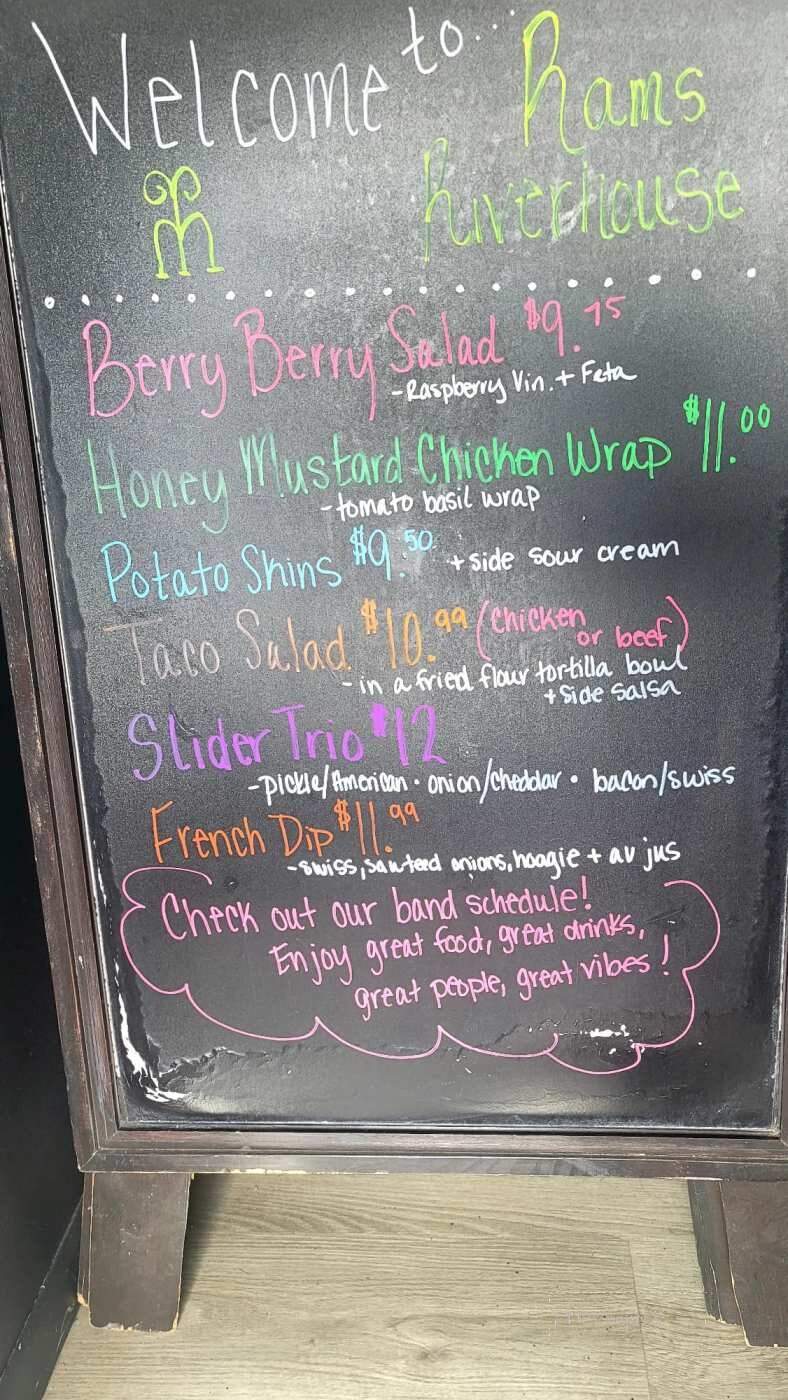 Welcome to... Rams
Riverhouse
Berry Berry Salad $9.75
-Raspberry Vin. + Feta
Honey Mustard Chicken Wrap $11.00
-tomato basil wrap
Potato Skins $9.50 +side sour cream
Taco Salad $10.99 (chicken or beef)
-in a fried flour tortilla bowl
+side salsa
Slider Trio $12
-pickle/American • onion/cheddar • bacon/swiss
French Dip $11.99
-swiss, sauteed onions, hoagie + au jus
Check out our band schedule!
Enjoy great food, great drinks,
great people, great vibes!